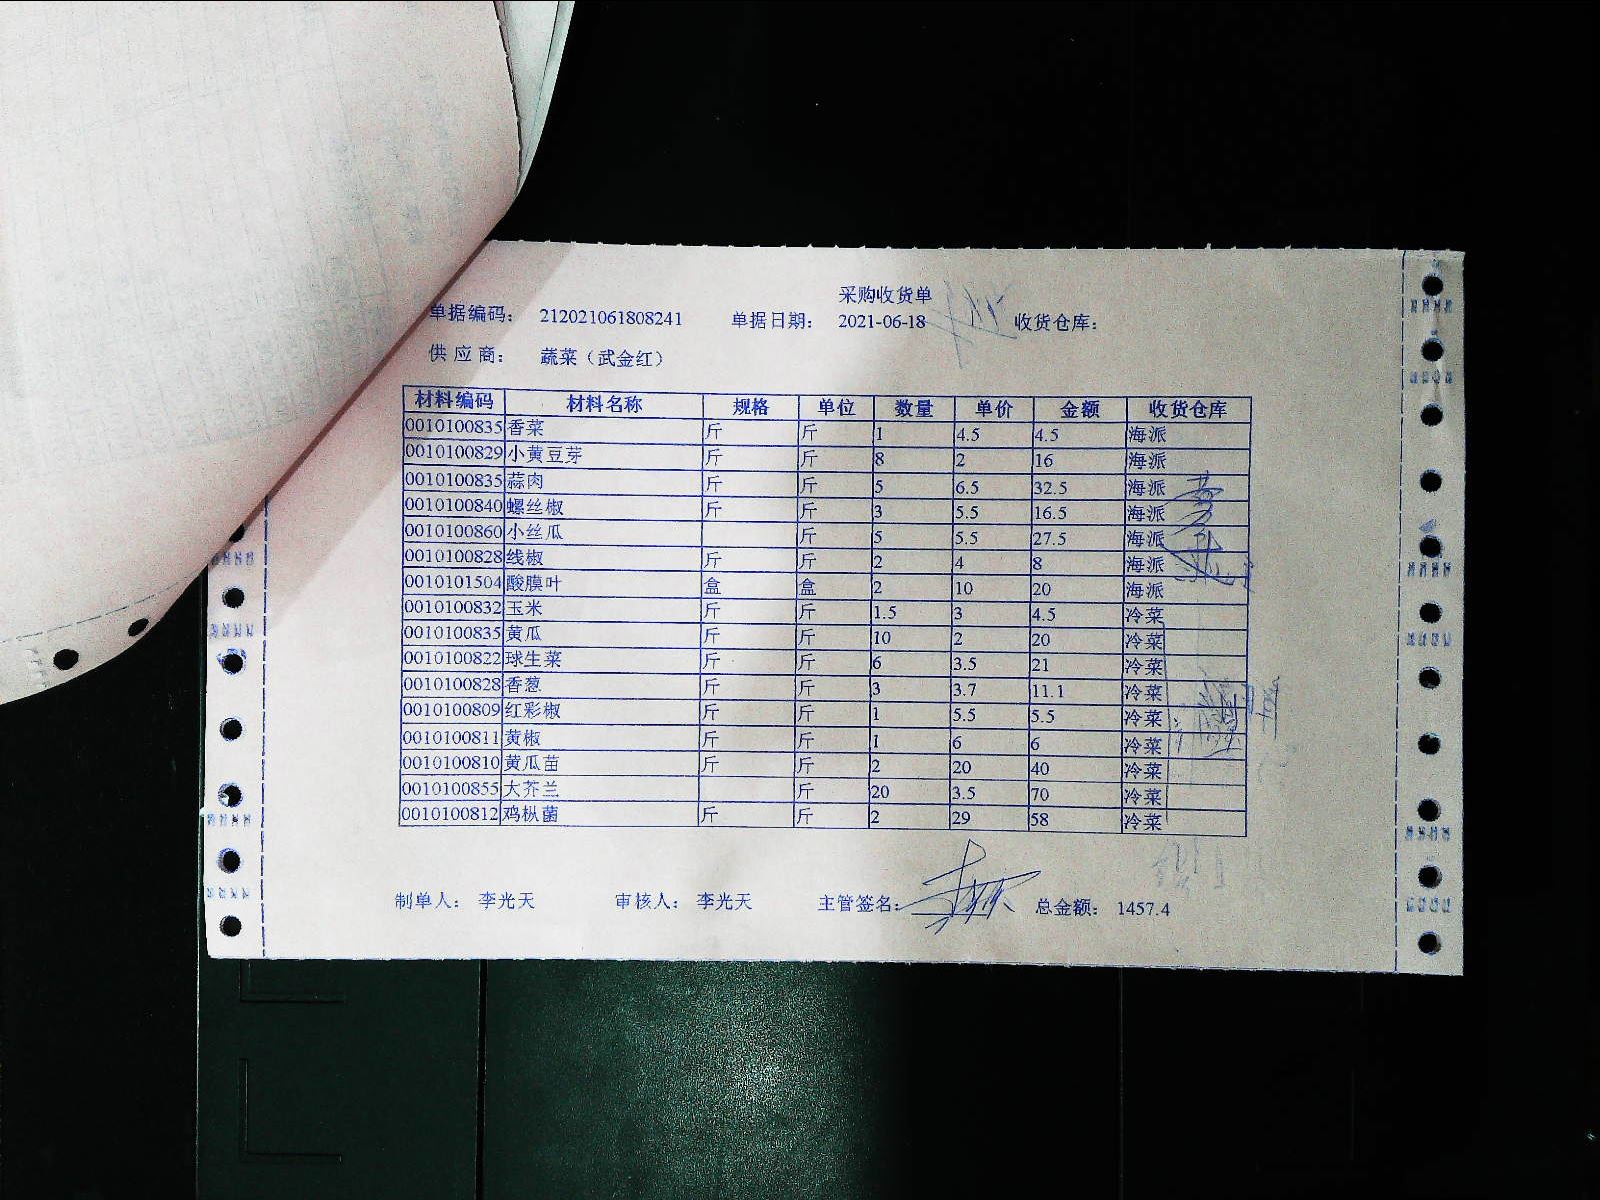 采购收货单
单据编码： 212021061808241 单据日期： 2021-06-18 收货仓库：
供应商： 蔬菜（武金红）
材料编码 材料名称 规格 单位 数量 单价 金额 收货仓库
0010100835 香菜 斤 斤 1 4.5 4.5 海派
0010100829 小黄豆芽 斤 斤 8 2 16 海派
0010100835 蒜肉 斤 斤 5 6.5 32.5 海派
0010100840 螺丝椒 斤 斤 3 5.5 16.5 海派
0010100860 小丝瓜 斤 5 5.5 27.5 海派
0010100828 线椒 斤 斤 2 4 8 海派
0010101504 酸膜叶 盒 盒 2 10 20 海派
0010100832 玉米 斤 斤 1.5 3 4.5 冷菜
0010100835 黄瓜 斤 斤 10 2 20 冷菜
0010100822 球生菜 斤 斤 6 3.5 21 冷菜
0010100828 香葱 斤 斤 3 3.7 11.1 冷菜
0010100809 红彩椒 斤 斤 1 5.5 5.5 冷菜
0010100811 黄椒 斤 斤 1 6 6 冷菜
0010100810 黄瓜苗 斤 斤 2 20 40 冷菜
0010100855 大芥兰 斤 20 3.5 70 冷菜
0010100812 鸡枞菌 斤 斤 2 29 58 冷菜
制单人： 李光天 审核人： 李光天 主管签名： 总金额： 1457.4